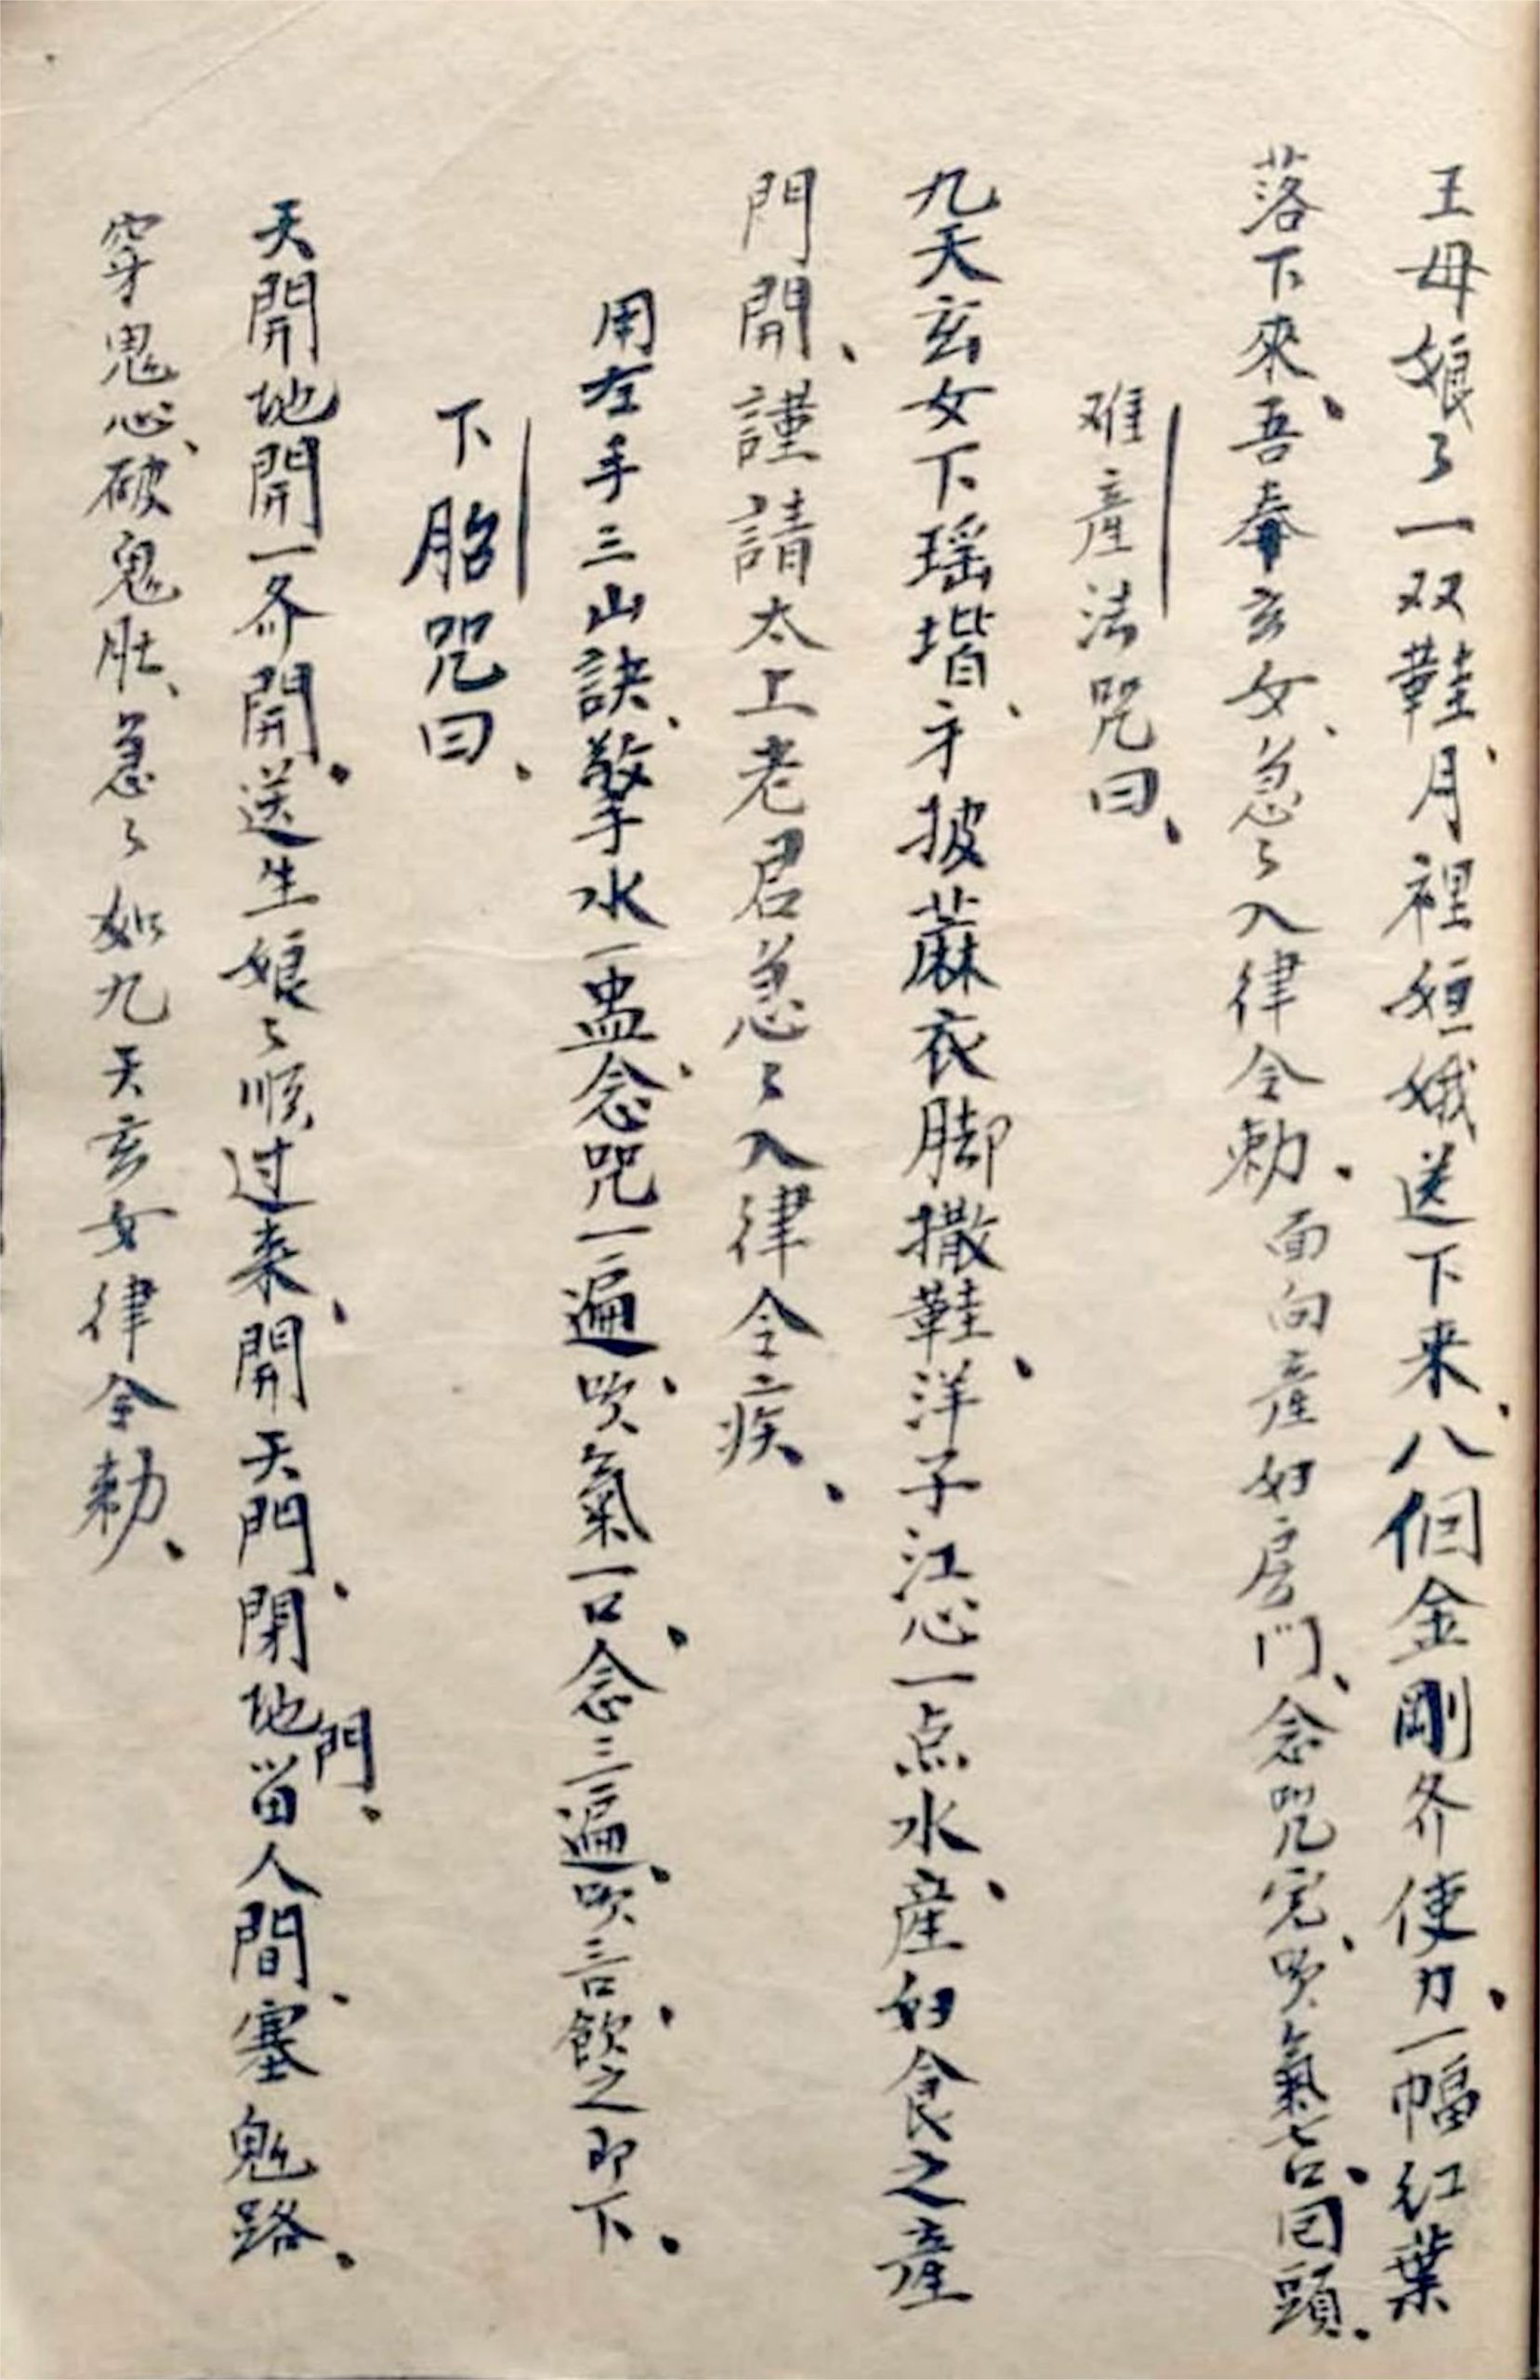 王母娘々一双鞋、月裡姮娥送下来、八個金剛齐使力、一幅红葉
落下來、吾奉玄女、急々入律令勅、面向産妇房门、念咒完、吹氣七口、回頭、
难産法咒曰、
九天玄女下瑶堦、牙披蔴衣脚撒鞋、洋子江心一点水、産妇食之産
門開、謹請太上老君急々入律令疾、
用左手三山訣、擎水一盅、念咒一遍、吹氣一口、念三遍、吹三口、飲之即下、
下胎咒曰、
天開地開一齐開、送生娘々順过来、開天門、閉地門、留人間、塞鬼路、
穿鬼心、破鬼肚、急々如九天玄女律令勅、